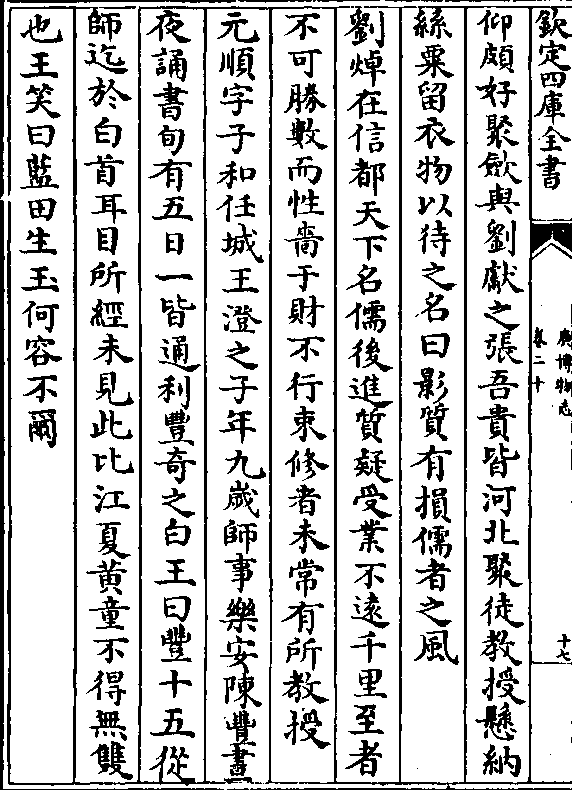 欽定四庫全書
廣博物志
卷二十
十七
仰頗好聚歛與劉獻之張吾貴皆河北聚徒教授懸納
絲粟留衣物以待之名曰影質有損儒者之風
劉焯在信都天下名儒後進質疑受業不逺千里至者
不可勝數而性嗇于財不行束修者未常有所教授
元順字子和任城王澄之子年九歲師事樂安陳豐晝
夜誦書旬有五日一皆通利豐奇之白王曰豐十五從
師迄於白首耳目所經未見此比江夏黄童不得無雙
也王笑曰藍田生玉何容不爾